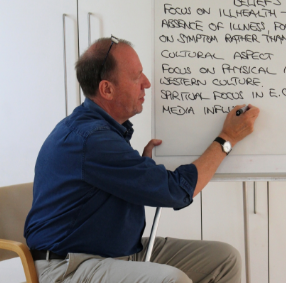 BELIEFS
FOCUS ON ILLHEALTH -
ABSENCE OF ILLNESS, FO
ON SYMPTOM RATHER THAN
CULTURAL ASPECT
FOCUS ON PHYSICAL
WESTERN CULTURE.
SPIRITUAL FOCUS IN E.
MEDIA INFLU